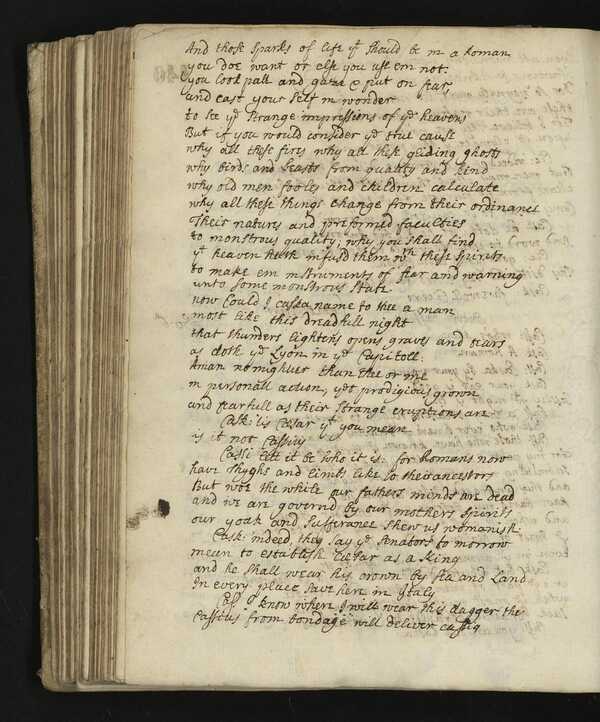 And those sparks of life yt should be in a Roman
you doe want or else you use em not.
you look pale and gaze & put on fear
and cast your self in wonder
to see ye strange impressions of ye heavens
But if you would consider ye true cause
why all these fires why all these gliding ghosts
why birds and beasts from quality and kind
why old men fooles and children calculate
why all these things change from their ordinance
Their natures and preformed faculties
to monstrous quality, why you shall find
yt heaven hath infusd them wth these spirits
to make em instruments of fear and warning
unto some monstrous state
now Could I caska name to thee a man
most like this dreadfull night
that thunders lightens opens graves and roars
as doth ye Lyon in ye Capitoll:
A man no mightier than thee or me
in personall action, yet prodigious grown
and fearfull as their strange eruptions are
Cask: tis Cæsar yt you mean
is it not Cassius
Cassi lett it be who it is: for Romans now
have Thyghs and limbs like to their ancestrs
But woe the while our fathers minds are dead
and we are governd by our mothers spirits
our yoak and sufferance shew us womanish:
Cask: indeed, they say ye senators to morrow
mean to establish Cæsar as a King
and he shall wear his crown by sea and Land
In every place save here in Italy
I know where I will wear this dagger the
Cassius from bondage will deliver